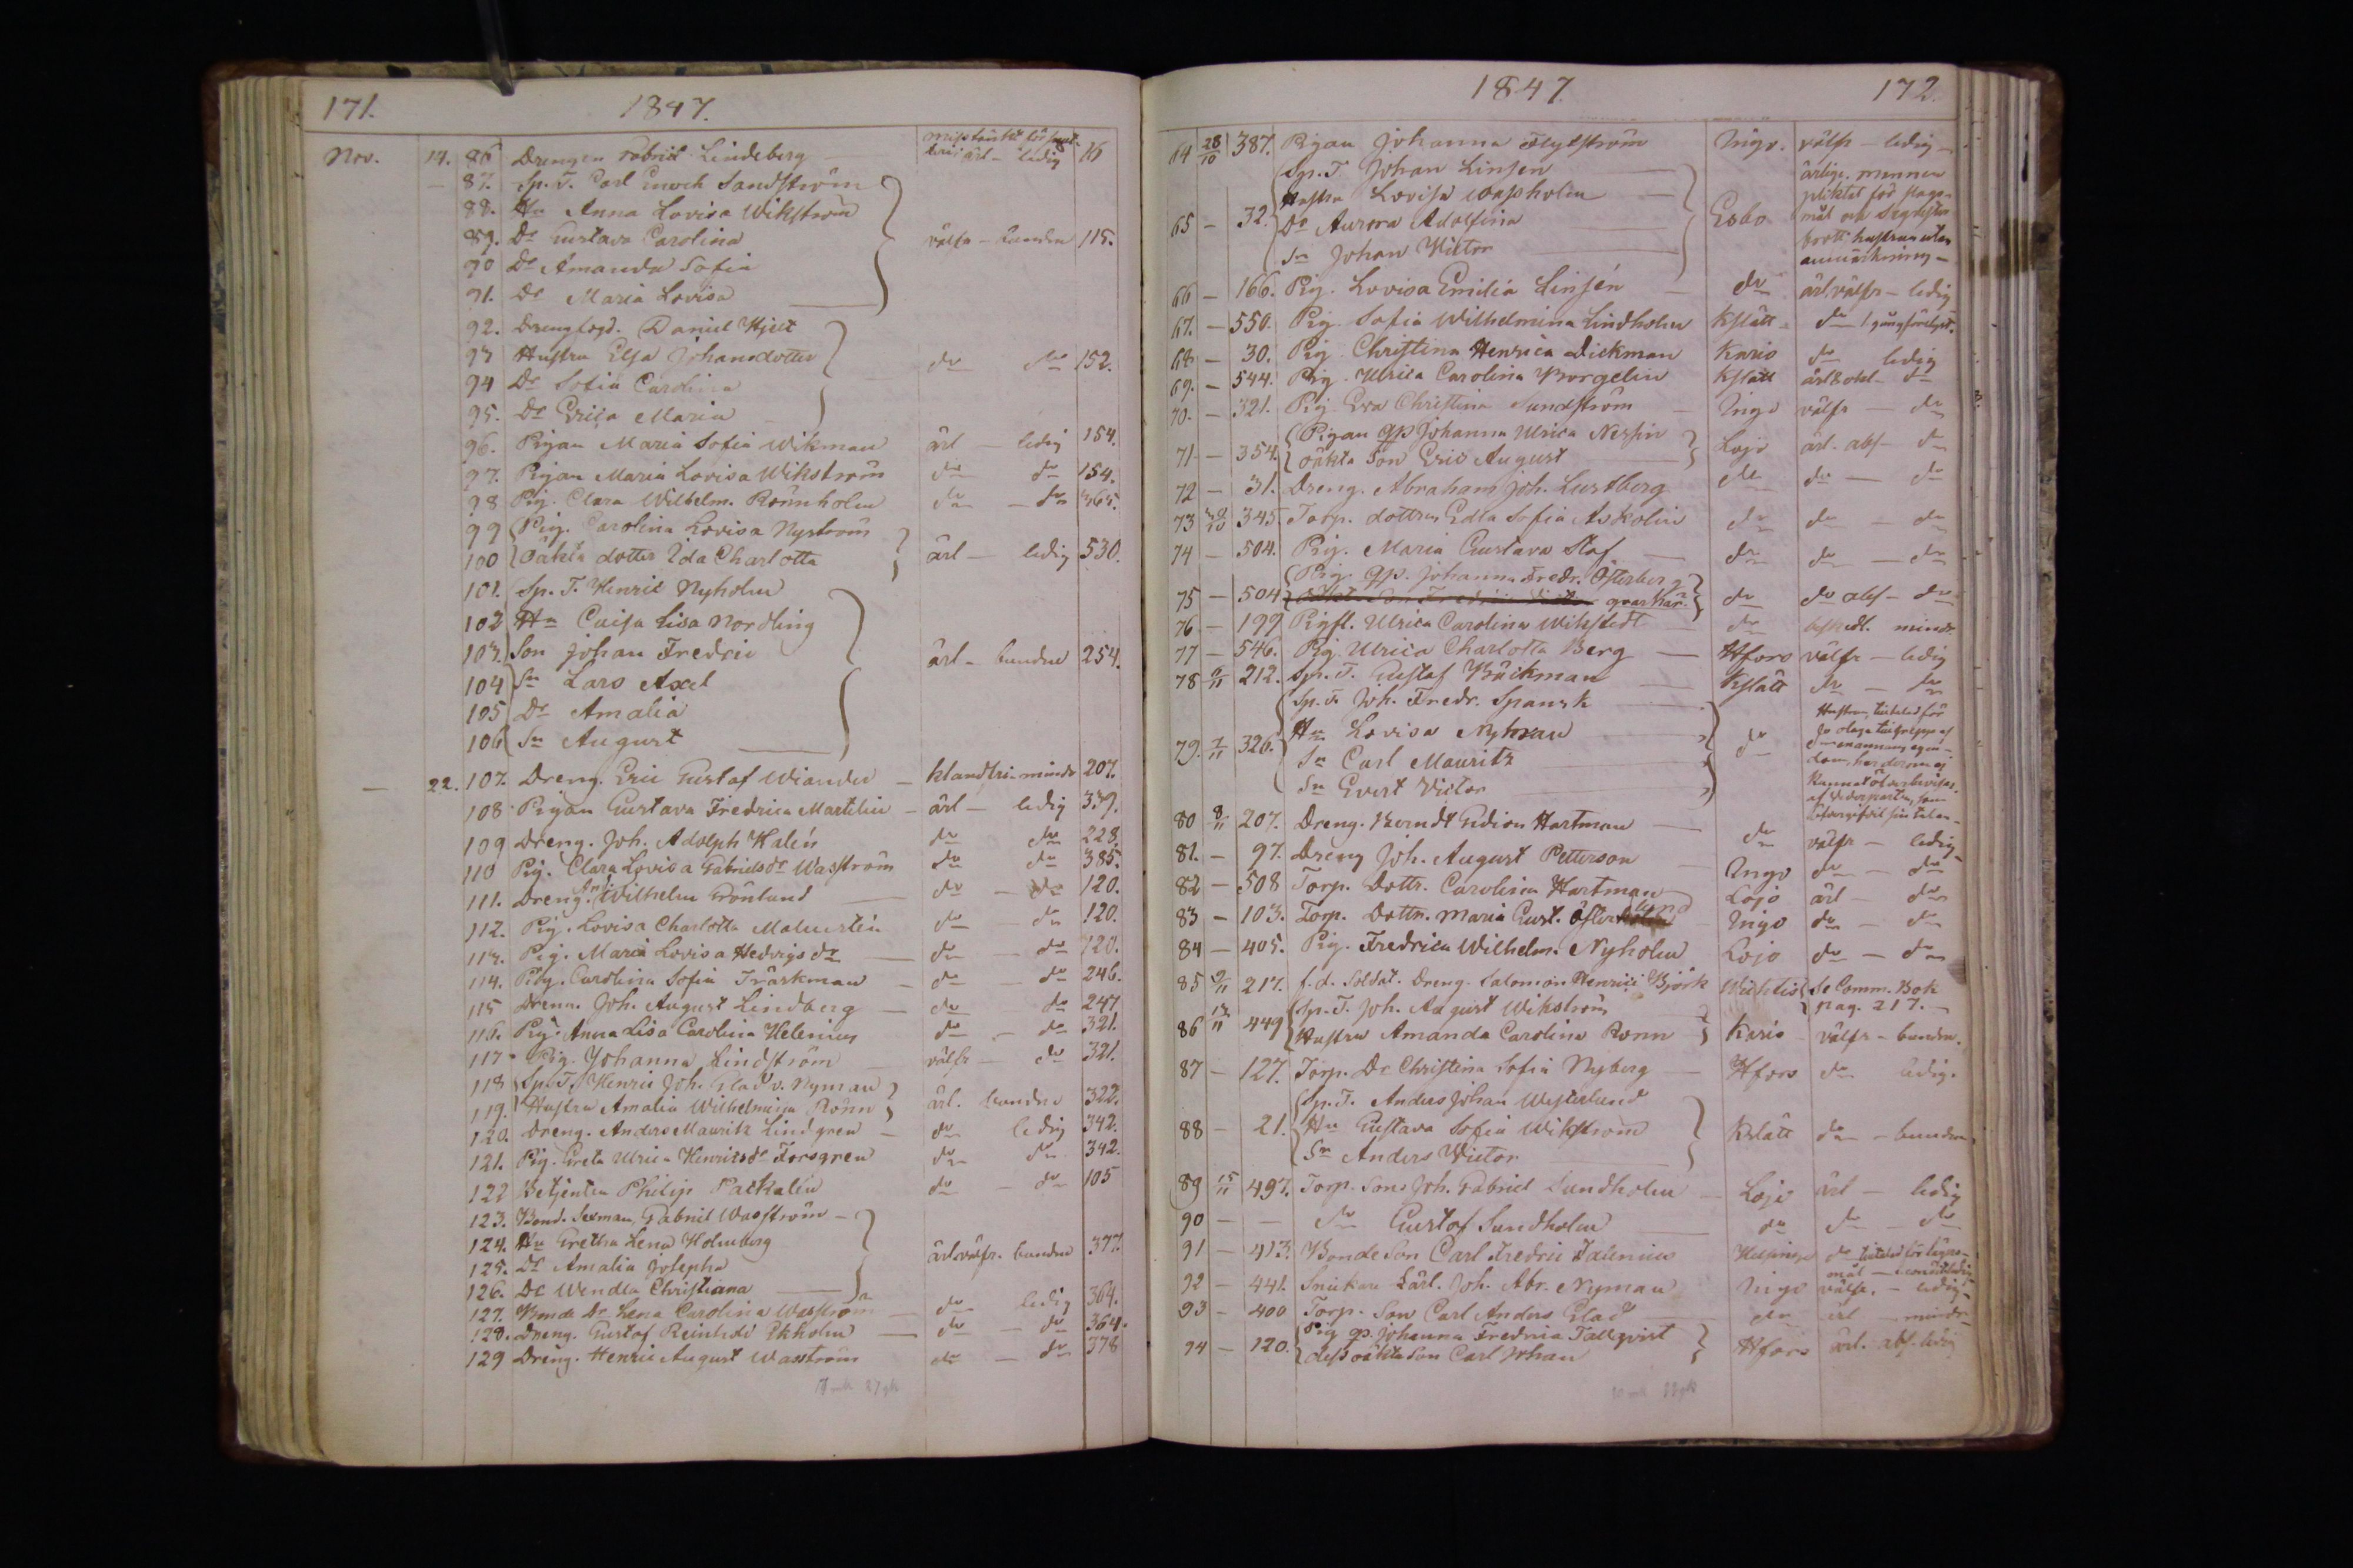 171. 1847.
Nov. 14. 86 Drengen Gabriel Lindeberg — ärl - ledig 16
— 87. Sp. T. Carl Enoch Sandström
88. Hu Anna Lovisa Wikström
89. Dr Gustava Carolina välfr - bunden 115.
90 Dr Amanda Sofia
91. Dr Maria Lovisa
92. Drengfogd. Daniel Hjelt
93 Hustru Elsa Johansdotter do do 152.
94 Dr Sofia Carolina
95. Dr Erica Maria
96. Pigan Maria Sofia Wikman ärl ledig 154.
97. Pigan Maria Lovisa Wikström do do 154.
98 Pig. Clara Wilhelm. Rönnholm do - do 365.
99 Pig. Carolina Lovisa Nyström
100 Oäkta dotter Ida Charlotta ärl - ledig 530.
101. Sp. T. Henric Nyholm
102 Hu Caisa Lisa Nordling
103. Son Johan Fredric ärl - bunden 254.
104 Sn Lars Axel
105 Dr Amalia
106 Sn August
— 22. 107. Dreng. Eric Gustaf Wiander - mindr 207.
108. Pigan Gustava Fredrica Martelin - ärl - ledig 339.
109 Dreng. Joh. Adolph Kalén do do 228.
110 Pig. Clara Lovisa Gabrielsdr Wasström do do 385.
111. Dreng. An. Wilhelm Grönlund do - do 120.
112. Pig. Lovisa Charlotta Malmstén do - do 120.
113. Pig. Maria Lovisa Hedvigsdr — do - do 120.
114. Pig. Carolina Sofia Träskman - do - do 246.
115 Dreng. Joh. August Lindberg - do do 247
116. Pig. Anna Lisa Carolina Helenius do - do 321.
117. Pig. Johanna Lindström välfr - do 321.
118 Sp. T. Henric Joh. Glad v. Nyman
119. Hustru Amalia Wilhelmina Rönn ärl. bunden 322.
120. Dreng. Anders Mauritz Lindgren - do ledig 342.
121. Pig. Greta Ulrica Henricsdr Forsgren do do 342.
122 Betjenten Philip Packalén do - do 105
123. Bond. Sexman, Gabriel Wasström -
124. Hu Gretha Lena Holmberg ärl. välfr. bunden 377.
125. Dr Amalia Josepha
126. Dr Wendla Christiana
127. Bonde Dr Lena Carolina Wasström do ledig 364.
128. Dreng. Gustaf Reinhold Ekholm — do - do 364.
129 Dreng. Henric August Wasström do - do 378
1847. 172.
64 28/10 387. Pigan Johanna Flytström Ingo. välfr - ledig -
Sp. T. Johan Linsén ärlige. mannen
Hustru Lovisa Washolm pliktat för
65 - 32. Dr Aurora Adolfina Esbo
Sn Johan Victor brott hustrun utan
anmärkning -
66 - 166. Pig. Lovisa Emilia Linsén do ärl. välfr - ledig
67. - 550. Pig. Sofia Wilhelmina Lindholm Kslätt do 1 gång förlyst.
68 - 30. Pig. Christina Henrica Dickman Karis do ledig
69. - 544. Pig. Ulrica Carolina Borgelin Kslätt do
70. - 321. Pig. Eva Christina Sundström Ingo välfr - do
71 - 354. Pigan qp Johanna Ulrica Nessin
oäkta Son Eric August Lojo ärl. abs - do
72 - 31. Dreng. Abraham Joh. Lustberg do do - do
73 29/10 345. Torp. dottren Edla Sofia Askolin do do - do
74 - 504. Pig. Maria Gustava Staf do do - do
75 - 504 Pig. qp. Johanna Fredr. Österberg do do abs - do
76 - 199 Pigfl. Ulrica Carolina Wikstedt do mindr
77 - 546. Pig. Ulrica Charlotta Berg — Hfors välfr - ledig
78 6/11 212. Sp. T. Gustaf Bäckman Kslätt do - do
Sp. T. Joh. Fredr. Spansk Hustrun, tiltalad för
79. 7/11 326. Hu Lovisa Nyman do
Sn Carl Mauritz
Sn Evert Victor
80 8/11 207. Dreng. Berndt Gideon Hartman do välfr - ledig
81. - 97. Dreng Joh. August Petterson Ingo do - do
82 - 508 Torp. Dottr. Carolina Hartman Lojo ärl - do
83 - 103. Torp. Dottr. Maria Gust. Österlund Ingo do - do
84 - 405. Pig. Fredrica Wilhelm. Nyholm Lojo do - do
85 9/11 217. f.d. Soldat. Dreng. Salomon Henrici Björk Wichtis Se Comm. Bok
pag. 217. -
Sp. T. Joh. August Wikström
86 13/11 449 Hustru Amanda Carolina Rönn Karis välfr - bunden.
87 - 127. Torp. Dr Christina Sofia Nyberg Hfors do ledig.
Sp. T. Anders Johan Westerlund
88 - 21. Hu Gustava Sofia Wikström Kslätt do - bunden
Sn Anders Victor
89 15/11 497. Torp. Son Joh. Gabriel Sundholm - Lojo ärl - ledig
90 - - do Gustaf Sundholm do do - do
91 - 413. Bonde Son Carl Fredric Falenius Helsinge do
92 - 441. Snickare Lärl. Joh. Abr. Nyman Ingo välfr. - ledig
93 - 400 Torp. Son Carl Anders Glad do ärl - mindr
94 - 120. Pig qp. Johanna Fredrica Tallqvist
dess oäkta Son Carl Johan Hfors ärl. abs. ledig